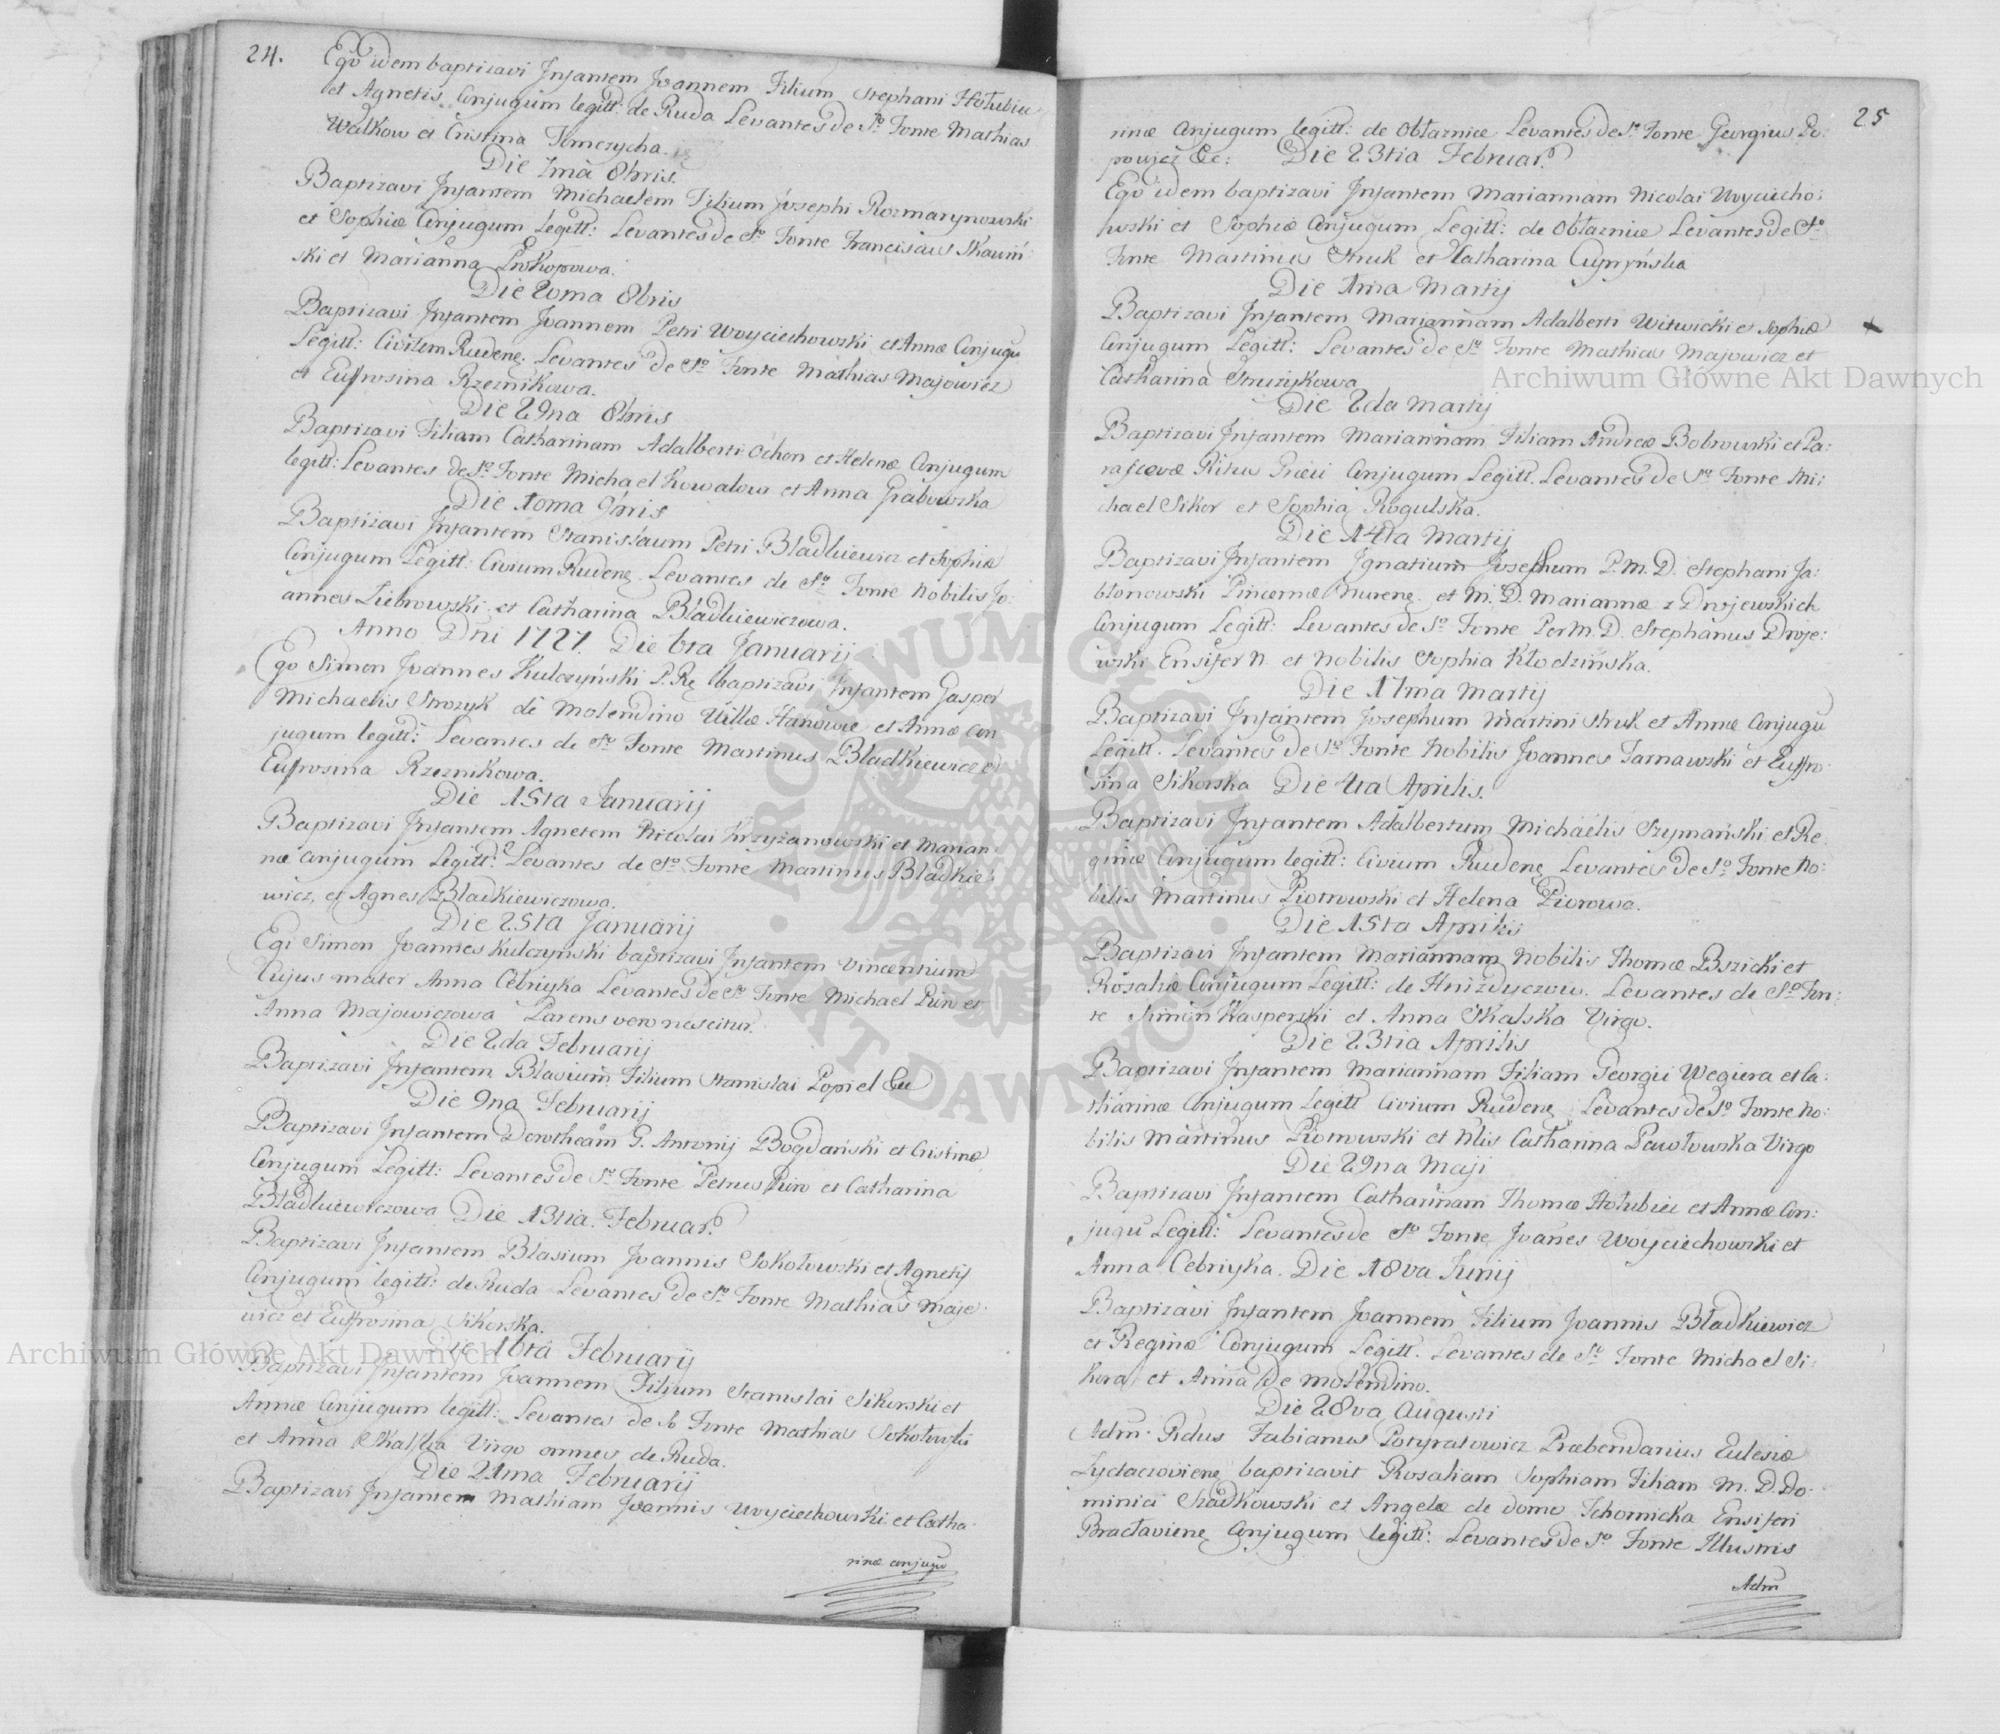 24.
Ego idem baptizavi Infantem Joannem Filium Stephani Hołubiu
et Agnetis Conjugum legitt: de Ruda Levantes de So Fonte Mathias
Walkow et Cristina Timczycha.
Die 7ma 8bris.
Baptizavi Infantem Michaelem Filium Josephi Rozmarynowski
et Sophiæ Conjugum Legitt: Levantes de So Fonte Franciscus Skawiń
ski et Marianna Prokopowa.
Die 20ma 8bris
Baptizavi Infantem Joannem Petri Woyciechowski et Annæ Conjugu
Legitt: Civium Rudenę. Levantes de So Fonte Mathias Majowicz
et Euffrosina Rzeznikowa.
Die 29na 8bris
Baptizavi Filiam Catharinam Adalberti Ochon et Helenæ Conjugum
legitt: Levantes de So Fonte Michael Kowalow et Anna Grabowska
Die 10ma 9bris
Baptizavi Infantem Stanislaum Petri Bladkiewicz et Sophiæ
Conjugum Legitt: Civium Rudenę. Levantes de So Fonte Nobilis Jo:
annes Liebrowski et Catharina Bladkiewiczowa.
Anno Dni 1727. Die 6ta Januarij
Ego Simon Joannes Kulczyński P. Rę baptizavi Infantem Gasper
Michaelis Strozyk de Molendino Villæ Hanowce et Annæ Con
jugum legitt: Levantes de So Fonte Martinus Bladkiewicz et
Euffrosina Rzeznikowa.
Die 15ta Januarij
Baptizavi Infantem Agnetem Nicolai Krzyżanowski et Marian:
næ Conjugum Legitt: Levantes de So Fonte Martinus Bladkie:
wicz, et Agnes Bladkiewiczowa.
Die 25ta Januarij
Ego Simon Joannes Kulczynski baptizavi Infantem Vincentium
Cujus mater Anna Cebriyka Levantes de So Fonte Michael Piro et
Anna Majowiczowa Parens vero nescitur.
Die 2da Februarij
Baptizavi Infantem Blasium Filium Stanislai Popiel &c
Die 9na Februarij
Baptizavi Infantem Dorotheam G. Antonij Bogdański et Cristinæ
Conjugum Legitt: Levantes de So Fonte Petrus Piro et Catharina
Bladkiewiczowa Die 13tia. Februar.
Baptizavi Infantem Blasium Joannis Sokołowski et Agnetis
Conjugum legitt: de Ruda Levantes de So Fonte Mathias Maje:
wicz et Euffrosina Sikorska.
Die 16ta Februarij
Baptizavi Infantem Joannem Filium Stanislai Sikorski et
Annæ Conjugum legitt: Levantes de So Fonte Mathias Sokołowski
et Anna Skalska Virgo omnes de Ruda.
Die 21ma Februarij
Baptizavi Infantem Mathiam Joannis Woyciechowski et Catha:
rinæ conjugu
25
rinæ Conjugum legitt: de Obłaznice Levantes de So Fonte Georgius Po:
powicz &c: Die 23tia Februar.
Ego idem baptizavi Infantem Mariannam Nicolai Woyciecho:
wski et Sophiæ Conjugum Legitt: de Obłaznice Levantes de So
Fonte Martinus Struk et Catharina Cupryńska
Die 1ma Martij
Baptizavi Infantem Mariannam Adalberti Witwicki et Sophiæ
Conjugum Legitt: Levantes de So Fonte Mathias Majowicz et
Catharina Struzykowa
Die 2da Martij
Baptizavi Infantem Mariannam Filiam Andreæ Bobrowski et Pa:
rascevæ Ritus Græci Conjugum Legitt. Levantes de So Fonte Mi:
chael Sikor et Sophia Rogulska.
Die 14ta Martij
Baptizavi Infantem Ignatium Josephum P. M. D. Stephani Ja:
błonowski Pincernæ Nurenę. et M. D. Mariannæ z Drojewskich
Conjugum Legitt: Levantes de So Fonte Per M. D. Stephanus Droje:
wski Ensifer N. et Nobilis Sophia Kłodzińska.
Die 17ma Martij
Baptizavi Infantem Josephum Martini Struk et Annæ Conjugu
Legitt. Levantes de So Fonte Nobilis Joannes Tarnawski et Euffro:
sina Sikorska Die 4ta Aprilis.
Baptizavi Infantem Adalbertum Michaelis Szymański et Re:
ginæ Conjugum legitt: Civium Rudenę Levantes de So Fonte No:
bilis Martinus Piotrowski et Helena Pirowa.
Die 15ta Aprilis
Baptizavi Infantem Mariannam Nobilis Thomæ Bszicki et
Rosaliæ Conjugum Legitt: de Hnizdyczow. Levantes de So Fon:
te Simon Kasperski et Anna Skalska Virgo.
Die 23tia Aprilis
Baptizavi Infantem Mariannam Filiam Georgii Węgiera et Ca:
tharinæ Conjugum Legitt Civium Rudenę Levantes de So Fonte No:
bilis Martinus Piotrowski et Nlis Catharina Pawłowska Virgo
Die 29na Maji
Baptizavi Infantem Catharinam Thomæ Hołubiec et Annæ Con:
jugu Legitt: Levantes de So Fonte Joanes Woyciechowski et
Anna Cebriyka. Die 18va Junij
Baptizavi Infantem Joannem Filium Joannis Bładkiewicz
et Reginæ Conjugum Legitt. Levantes de So Fonte Michael Si:
kora et Anna de Molendino.
Die 28va Augusti
Adm. Rdus Fabianus Potyratowicz Præbendarius Eclesiæ
Zydaczovienę baptizavit Rosaliam Sophiam Filiam M. D. Do:
minici Szadkowski et Angelæ de domo Tchornicka Ensiferi
Bracłavienę Conjugum legitt: Levantes de So Fonte Illustris
Adm
Archiwum Główne Akt Dawnych
Archiwum Główne Akt Dawnych
ARCHIWUM GŁÓWNE AKT DAWNYCH